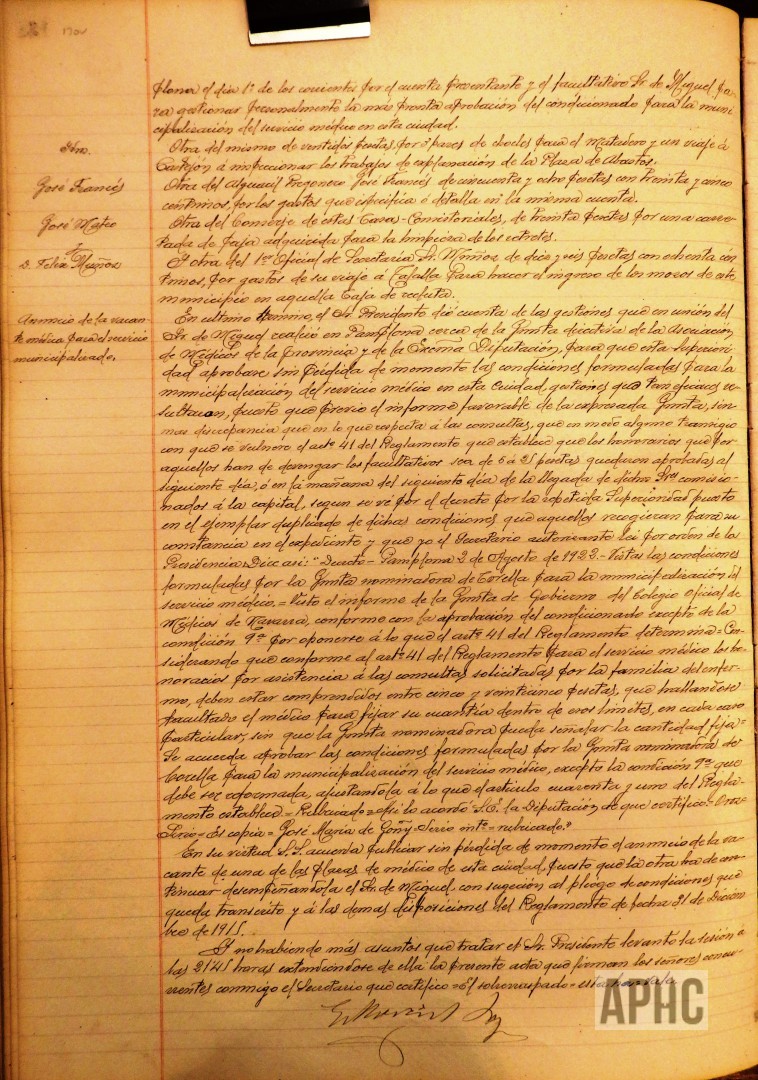 Nov
plona el dia 1º de los corrientes por el cuenta presentante y el facultativo Sr. de Miguel pa-
ra gestionar personalmente la mas pronta aprobación del condicionado para la muni-
cipalización del servicio médico en esta ciudad.
Otra del mismo de ventidos pesetas, por pares de chocles para el Matadero y un viaje á
Castejón á inspeccionar los trabajos de explanación de la Plaza de Abastos.
José Francés
Otra del Alguacil Pregonero José Francés de cincuenta y ocho pesetas con treinta y cinco
céntimos, por los gastos que especifica ó detalla en la misma cuenta.
José Mateo
Otra del Conserje de estas Casas-Consistoriales, de treinta pesetas por una carre-
tada de paja adquirida para la limpieza de los retretes.
D. Felix Muñoz
Y otra del 1er Oficial de Secretaria Sr. Muñoz de diez y seis pesetas con ochenta cén-
timos, por gastos de su viaje á Tafalla para hacer el ingreso de los mozos de este
municipio en aquella Caja de recluta.
Anuncio de la vacan-
te médica para el servicio
municipalizado.
En ultimo termino, el Sr. Presidente dió cuenta de las gestiones que en unión del
Sr. de Miguel realizó en Pamplona cerca de la Junta directiva de la Asociación
de Médicos de la Provincia y de la Excma Diputación, para que esta Superiori-
dad aprobase sin pérdida de momento las condiciones formuladas para la
municipalización del servicio médico en esta Ciudad, gestiones que tan eficaces re-
sultaron, puesto que previo el informe favorable de la expresada Junta, sin
mas discrepancia que en lo que respecta á las consultas, que en modo alguno transigio
con que se vulnere el artº 41 del Reglamento que establece que los honorarios que por
aquellos han de devengar los facultativos sea de 5 á 25 pesetas quedaron aprobadas al
siguiente dia, ó en la mañana del siguiente dia de la llegada de dichos Sres comisio-
nados á la capital, segun se vé por el decreto por la repetida Superioridad puesto
en el ejemplar duplicado de dichas condiciones que aquellos recogieran para su
constancia en el expediente y que yo el Secretario autorizante lei por orden de la
Presidencia: Dice asi: "Decreto- Pamplona 2 de Agosto de 1922.- Vistas las condiciones
formuladas por la Junta nominadora de Corella para la municipalización del
servicio médico.= Visto el informe de la Junta de Gobierno del Colegio Oficial de
Médicos de Navarra, conforme con la aprobación del condicionado excepto de la
condición 9ª por oponerse á lo que el artº 41 del Reglamento determina= Con-
siderando que conforme al artº 41 del Reglamento para el servicio médico los ho-
norarios por asistencia á las consultas solicitadas por la familia del enfer-
mo, deben estar comprendidos entre cinco y veinticinco pesetas, que hallandose
facultado el médico para fijar su cuantia dentro de esos limites, en cada caso
particular, sin que la Junta nominadora pueda señalar la cantidad fija=
Se acuerda aprobar las condiciones formuladas por la Junta nominadora de
Corella para la municipalización del servicio médico, excepto la condición 9ª que
debe ser reformada, ajustandola á lo que el articulo cuarenta y uno del Regla-
mento establece= Rubricado= Asi lo acordó S.E. la Diputación de que certifico=
Srio= Es copia= José Maria de Goñi= Srio intº= rubricado."
En su virtud S.S. acuerda publicar sin pérdida de momento el anuncio de la va-
cante de una de las plazas de médico de esta ciudad, puesto que la otra ha de con-
tinuar desempeñandola el Sr. de Miguel, con sugeción al pliego de condiciones que
queda transcrito y á las demas disposiciones del Reglamento de fecha 31 de Diciem-
bre de 1915.
Y no habiendo más asuntos que tratar el Sr. Presidente levantó la sesión á
las 21'45 horas extendiéndose de ella la presente acta que firman los señores concu-
rrentes conmigo el Secretario que certifico= sobrerraspado=
APHC